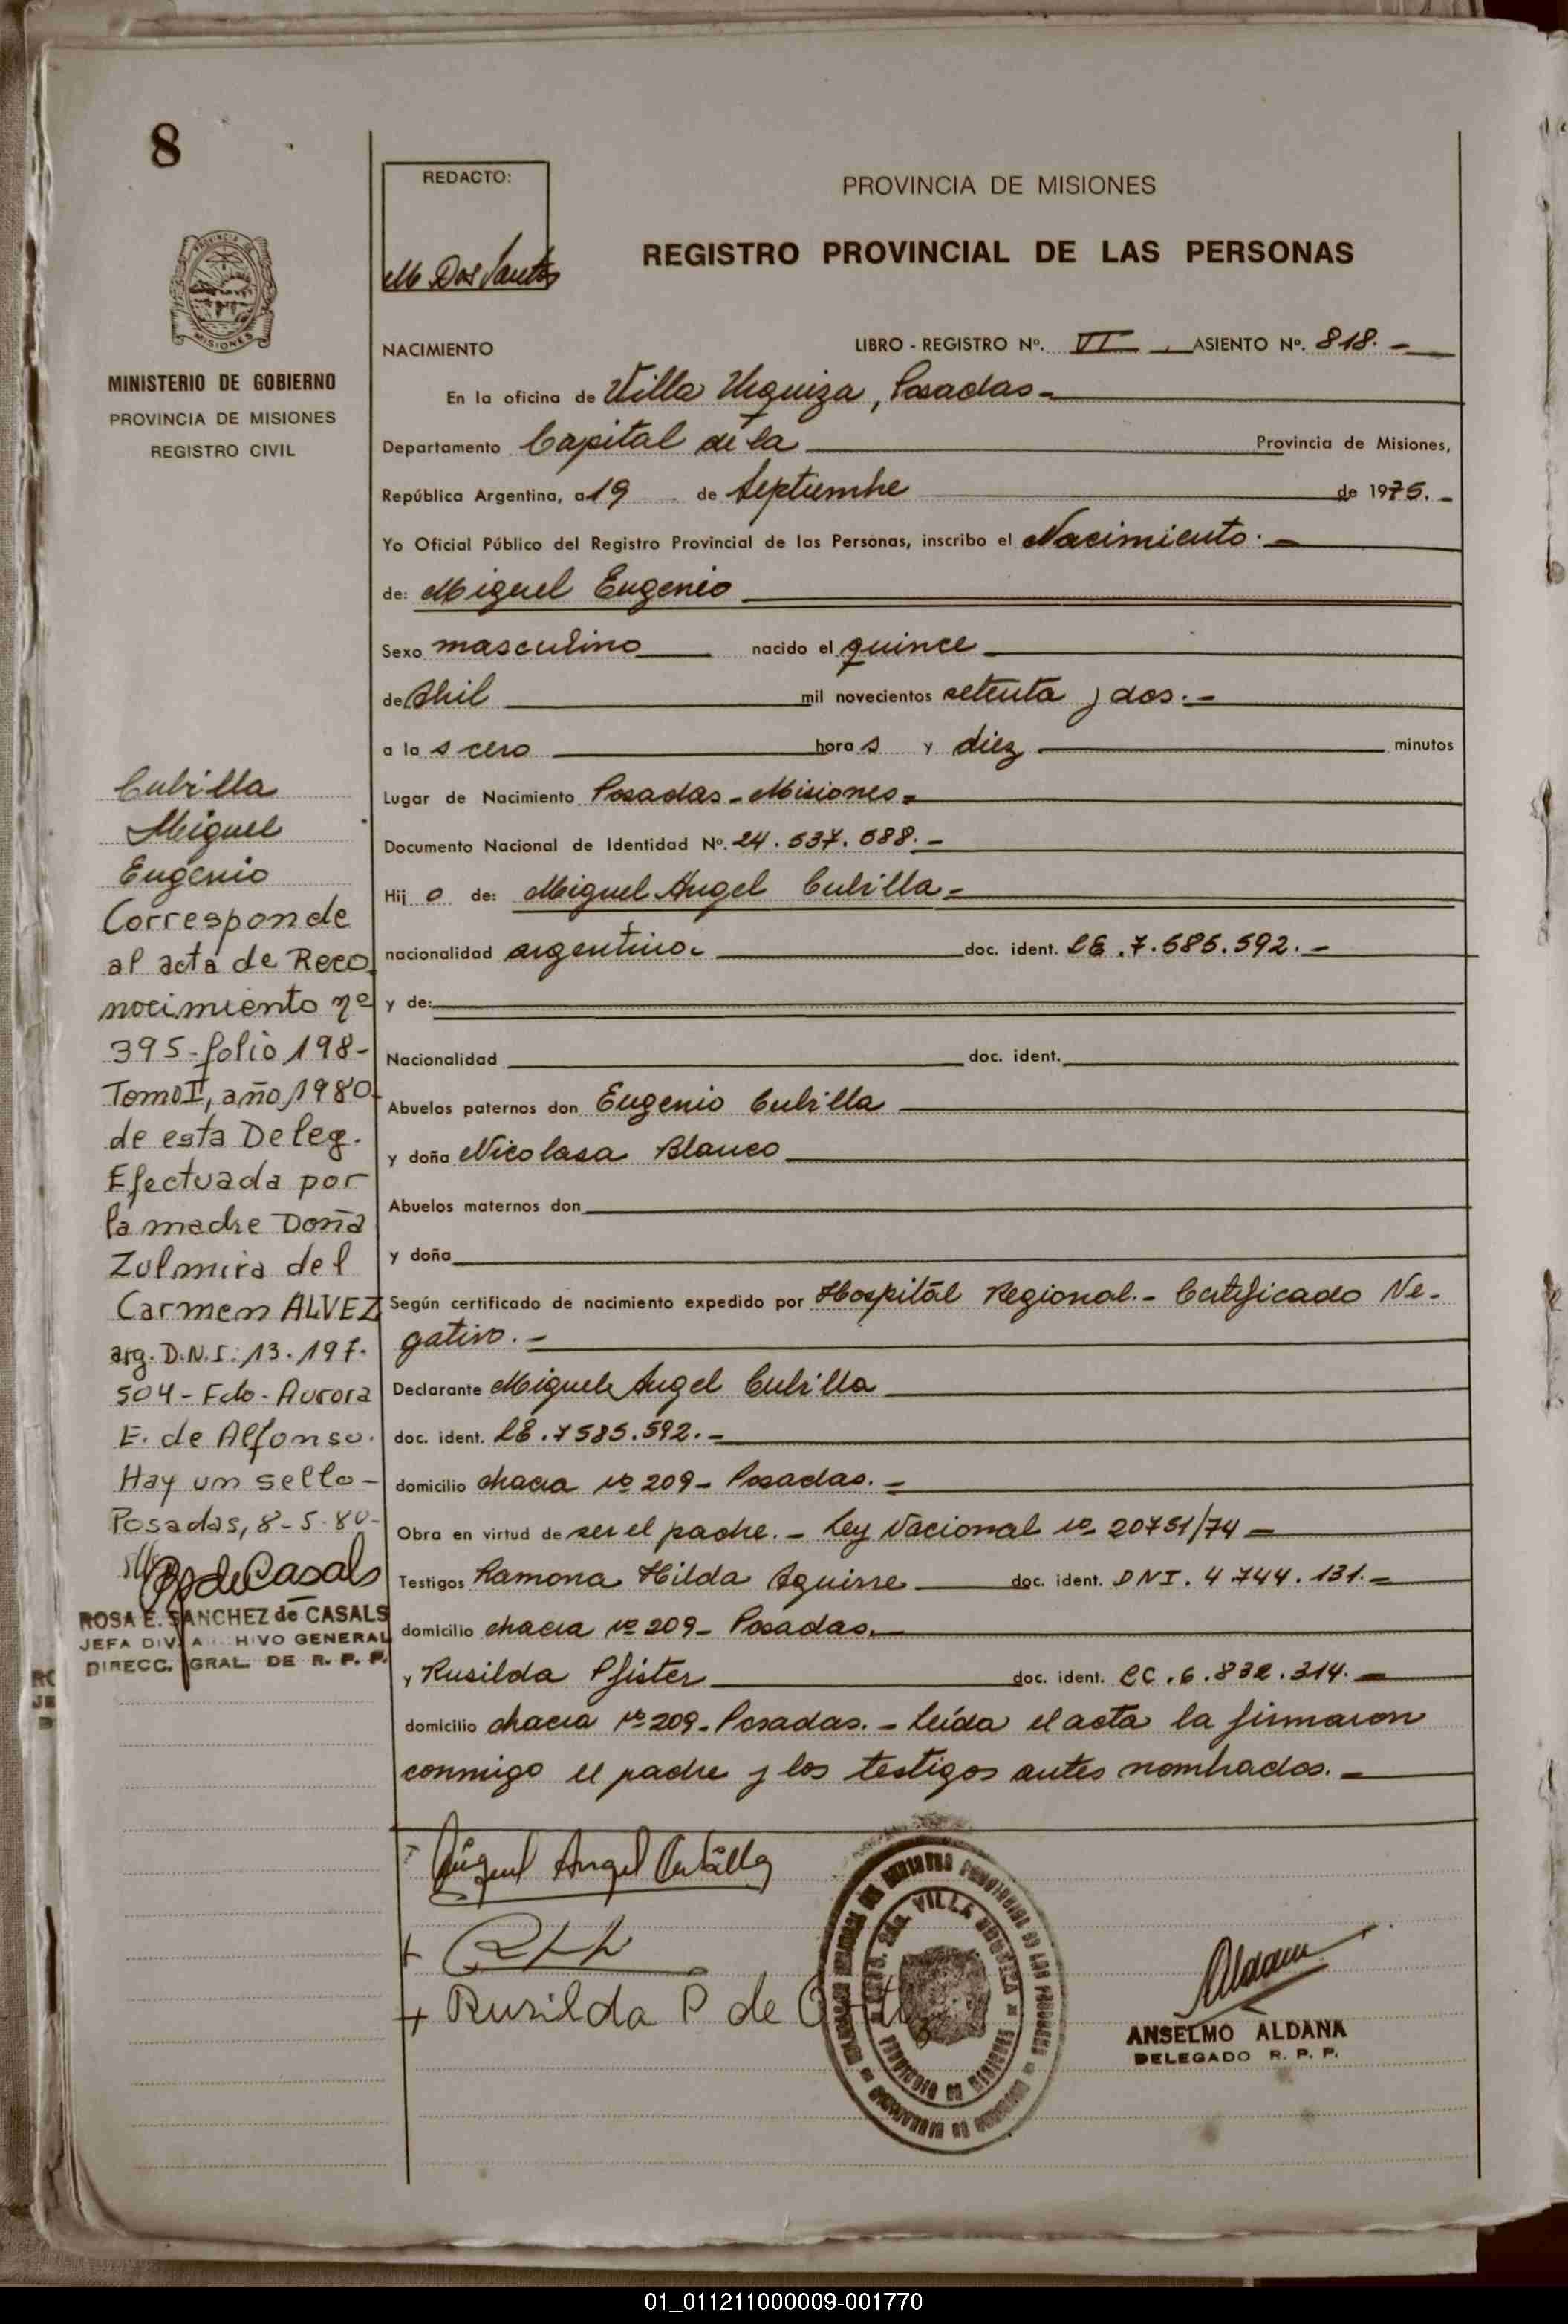 8
REDACTO:
M. Dos Santos
PROVINCIA DE MISIONES
REGISTRO PROVINCIAL DE LAS PERSONAS
MISIONES
MINISTERIO DE GOBIERNO
PROVINCIA DE MISIONES
REGISTRO CIVIL
NACIMIENTO LIBRO - REGISTRO Nº. VI ASIENTO Nº. 818.-
En la oficina de Villa Urquiza, Posadas-
Departamento Capital de la Provincia de Misiones,
República Argentina, a 19 de Septiembre de 1975.-
Yo Oficial Público del Registro Provincial de las Personas, inscribo el Nacimiento.-
de: Miguel Eugenio
Sexo masculino nacido el quince
de Abril mil novecientos setenta y dos.-
a las cero horas y diez minutos
Lugar de Nacimiento Posadas-Misiones-
Documento Nacional de Identidad Nº. 24.537.088.-
Hijo de: Miguel Angel Cubilla-
nacionalidad argentino- doc. ident. LE.7.585.592.-
y de:
Nacionalidad doc. ident.
Abuelos paternos don Eugenio Cubilla
y doña Nicolasa Blanco
Abuelos maternos don
y doña
Según certificado de nacimiento expedido por Hospital Regional.- Certificado Ne-
gativo.-
Declarante Miguel Angel Cubilla
doc. ident. LE.7585.592.-
domicilio chacra nº 209- Posadas.-
Obra en virtud de ser el padre.- Ley Nacional nº 20751/74-
Testigos Ramona Hilda Aguirre doc. ident. DNI. 4744.131.-
domicilio chacra nº 209- Posadas.-
y Rusilda Pfister doc. ident. LC.6.832.314.-
domicilio chacra nº 209-Posadas.- Leída el acta la firmaron
conmigo el padre y los testigos antes nombrados.-
Cubilla
Miguel
Eugenio
Corresponde
al acta de Reco
nocimiento nº
395-folio 198-
Tomo II, año 1980
de esta Deleg.
Efectuada por
la madre Doña
Zulmira del
Carmen ALVEZ
arg. D.N.I: 13.197.
504- Fdo- Aurora
E. de Alfonso.
Hay un sello-
Posadas, 8-5-80-
R de Casals
ROSA E. SANCHEZ de CASALS
JEFA DIV. A HIVO GENERAL
DIRECC. GRAL. DE R. P. P.
Miguel Angel Cubilla
+
+ Rusilda P de
VILLA URQUIZA
PROVINCIA DE MISIONES
Aldana
ANSELMO ALDANA
DELEGADO R. P. P.
01_011211000009-001770